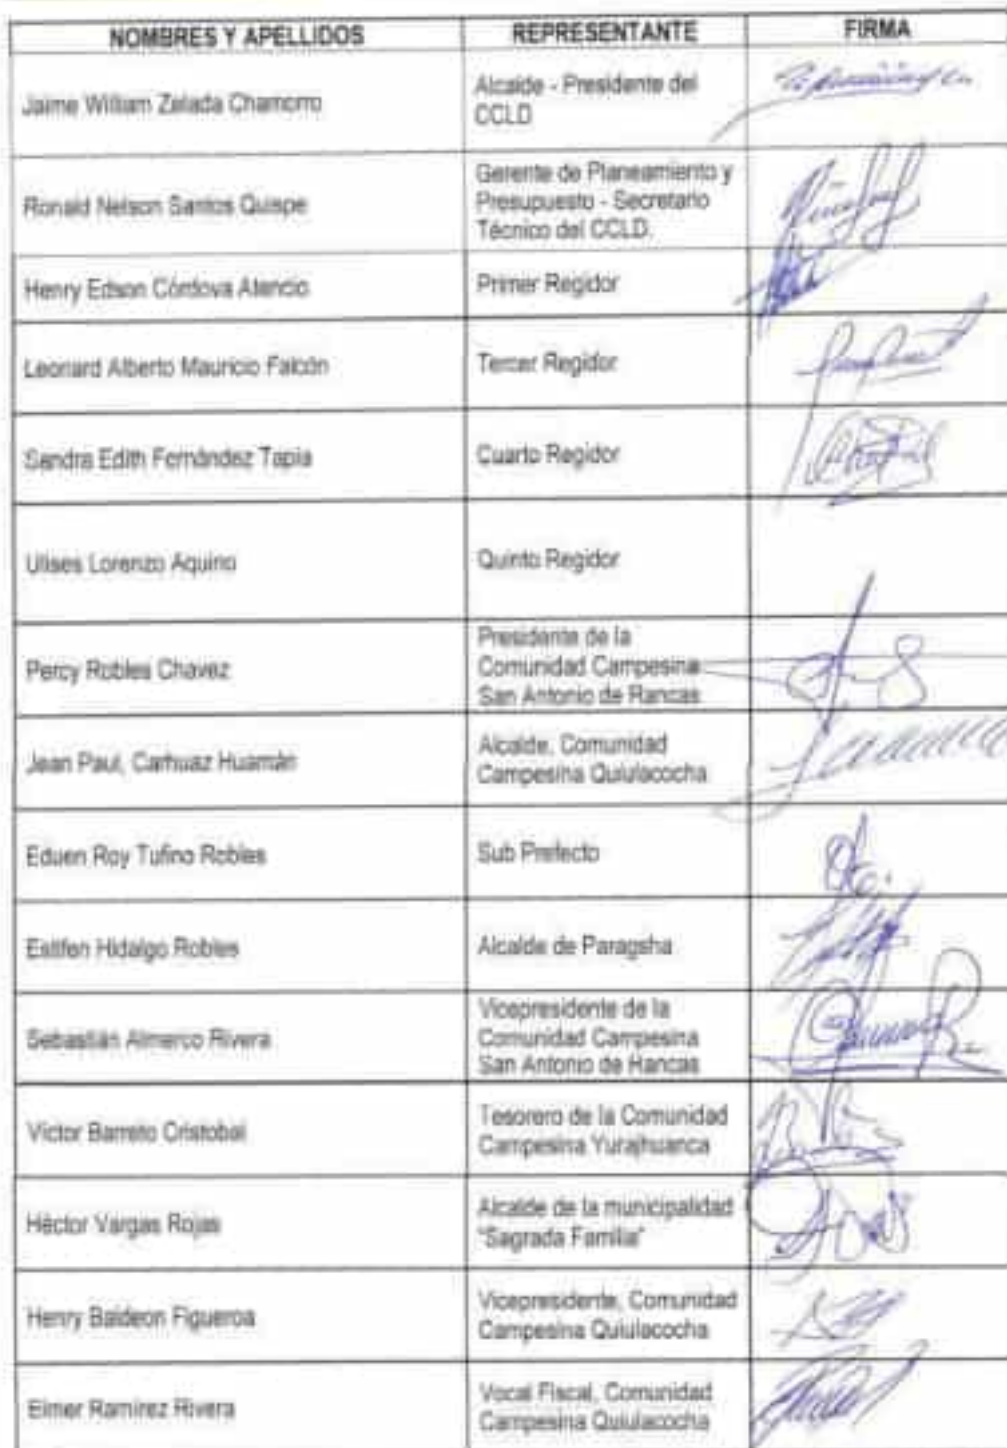 NOMBRES Y APELLIDOS REPRESENTANTE FIRMA
Jaime William Zelada Chamorro
Alcalde - Presidente del
CCLD
Ronald Nelson Santos Quispe
Gerente de Planeamiento y
Presupuesto - Secretario
Técnico del CCLD.
Henry Edson Córdova Atencio
Primer Regidor
Leonard Alberto Mauricio Falcón
Tercer Regidor
Sandra Edith Fernández Tapia
Cuarto Regidor
Ulises Lorenzo Aquino
Quinto Regidor
Percy Robles Chavez
Presidente de la
Comunidad Campesina
San Antonio de Rancas
Jean Paul, Carhuaz Huamán
Alcalde, Comunidad
Campesina Quiulacocha
Eduen Roy Tufino Robles
Sub Prefecto
Estifen Hidalgo Robles
Alcalde de Paragsha
Sebastián Almerco Rivera
Vicepresidente de la
Comunidad Campesina
San Antonio de Rancas
Victor Barreto Cristobal
Tesorero de la Comunidad
Campesina Yurajhuanca
Héctor Vargas Rojas
Alcalde de la municipalidad
"Sagrada Familia"
Henry Baldeon Figueroa
Vicepresidente, Comunidad
Campesina Quiulacocha
Elmer Ramirez Rivera
Vocal Fiscal, Comunidad
Campesina Quiulacocha